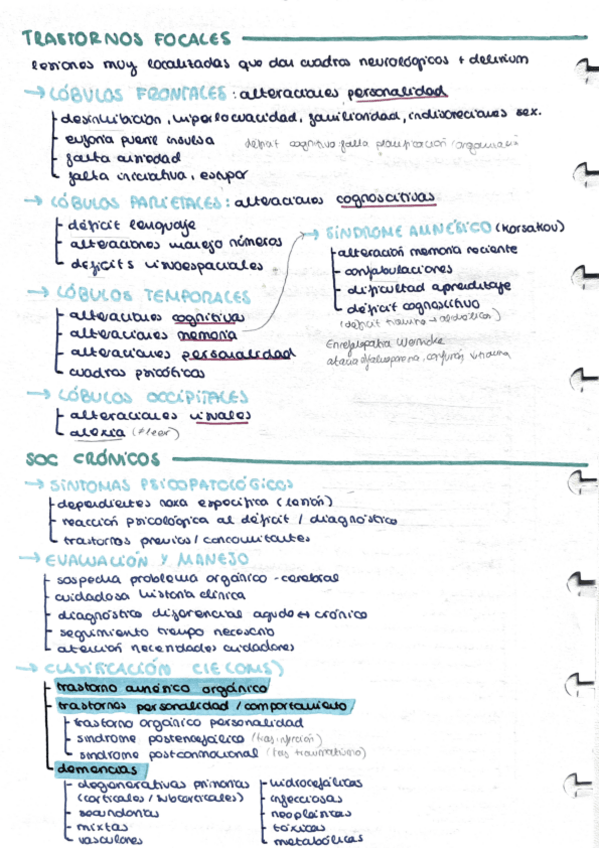 TRASTORNOS FOCALES
lesiones muy localizadas que dan cuadros neurológicos + delirium
→ LÓBULOS FRONTALES: alteraciones personalidad
desinhibición, hiperlocuacidad, familiaridad, indiscreciones sex.
euforia pueril insulsa
déficit cognitivo falla planificación/organización
falta ansiedad
falta iniciativa, estupor
→ LÓBULOS PARIETALES: alteraciones cognoscitivas
déficit lenguaje
alteraciones manejo números
déficits visoespaciales
→ SÍNDROME AMNÉSICO (Korsakov)
alteración memoria reciente
confabulaciones
dificultad aprendizaje
déficit cognoscitivo
(déficit tiamina → alcohólicos)
Encefalopatía Wernicke
ataxia, oftalmoparesia, confusión
→ LÓBULOS TEMPORALES
alteraciones cognitivas
alteraciones memoria
alteraciones personalidad
cuadros psicóticos
→ LÓBULOS OCCIPITALES
alteraciones visuales
alexia (≠leer)
SOC CRÓNICOS
→ SÍNTOMAS PSICOPATOLÓGICOS
dependientes noxa específica (lesión)
reacción psicológica al déficit / diagnóstico
trastornos previos / concomitantes
→ EVALUACIÓN Y MANEJO
sospecha problema orgánico-cerebral
cuidadosa historia clínica
diagnóstico diferencial agudo ↔ crónico
seguimiento tiempo necesario
atención necesidades cuidadores
→ CLASIFICACIÓN CIE (OMS)
trastorno amnésico orgánico
trastornos personalidad / comportamiento
trastorno orgánico personalidad
síndrome postencefalítico (tras infección)
síndrome postconmocional (tras traumatismo)
demencias
degenerativas primarias
(corticales / subcorticales)
secundarias
mixtas
vasculares
hidrocefálicas
infecciosas
neoplásicas
tóxicas
metabólicas